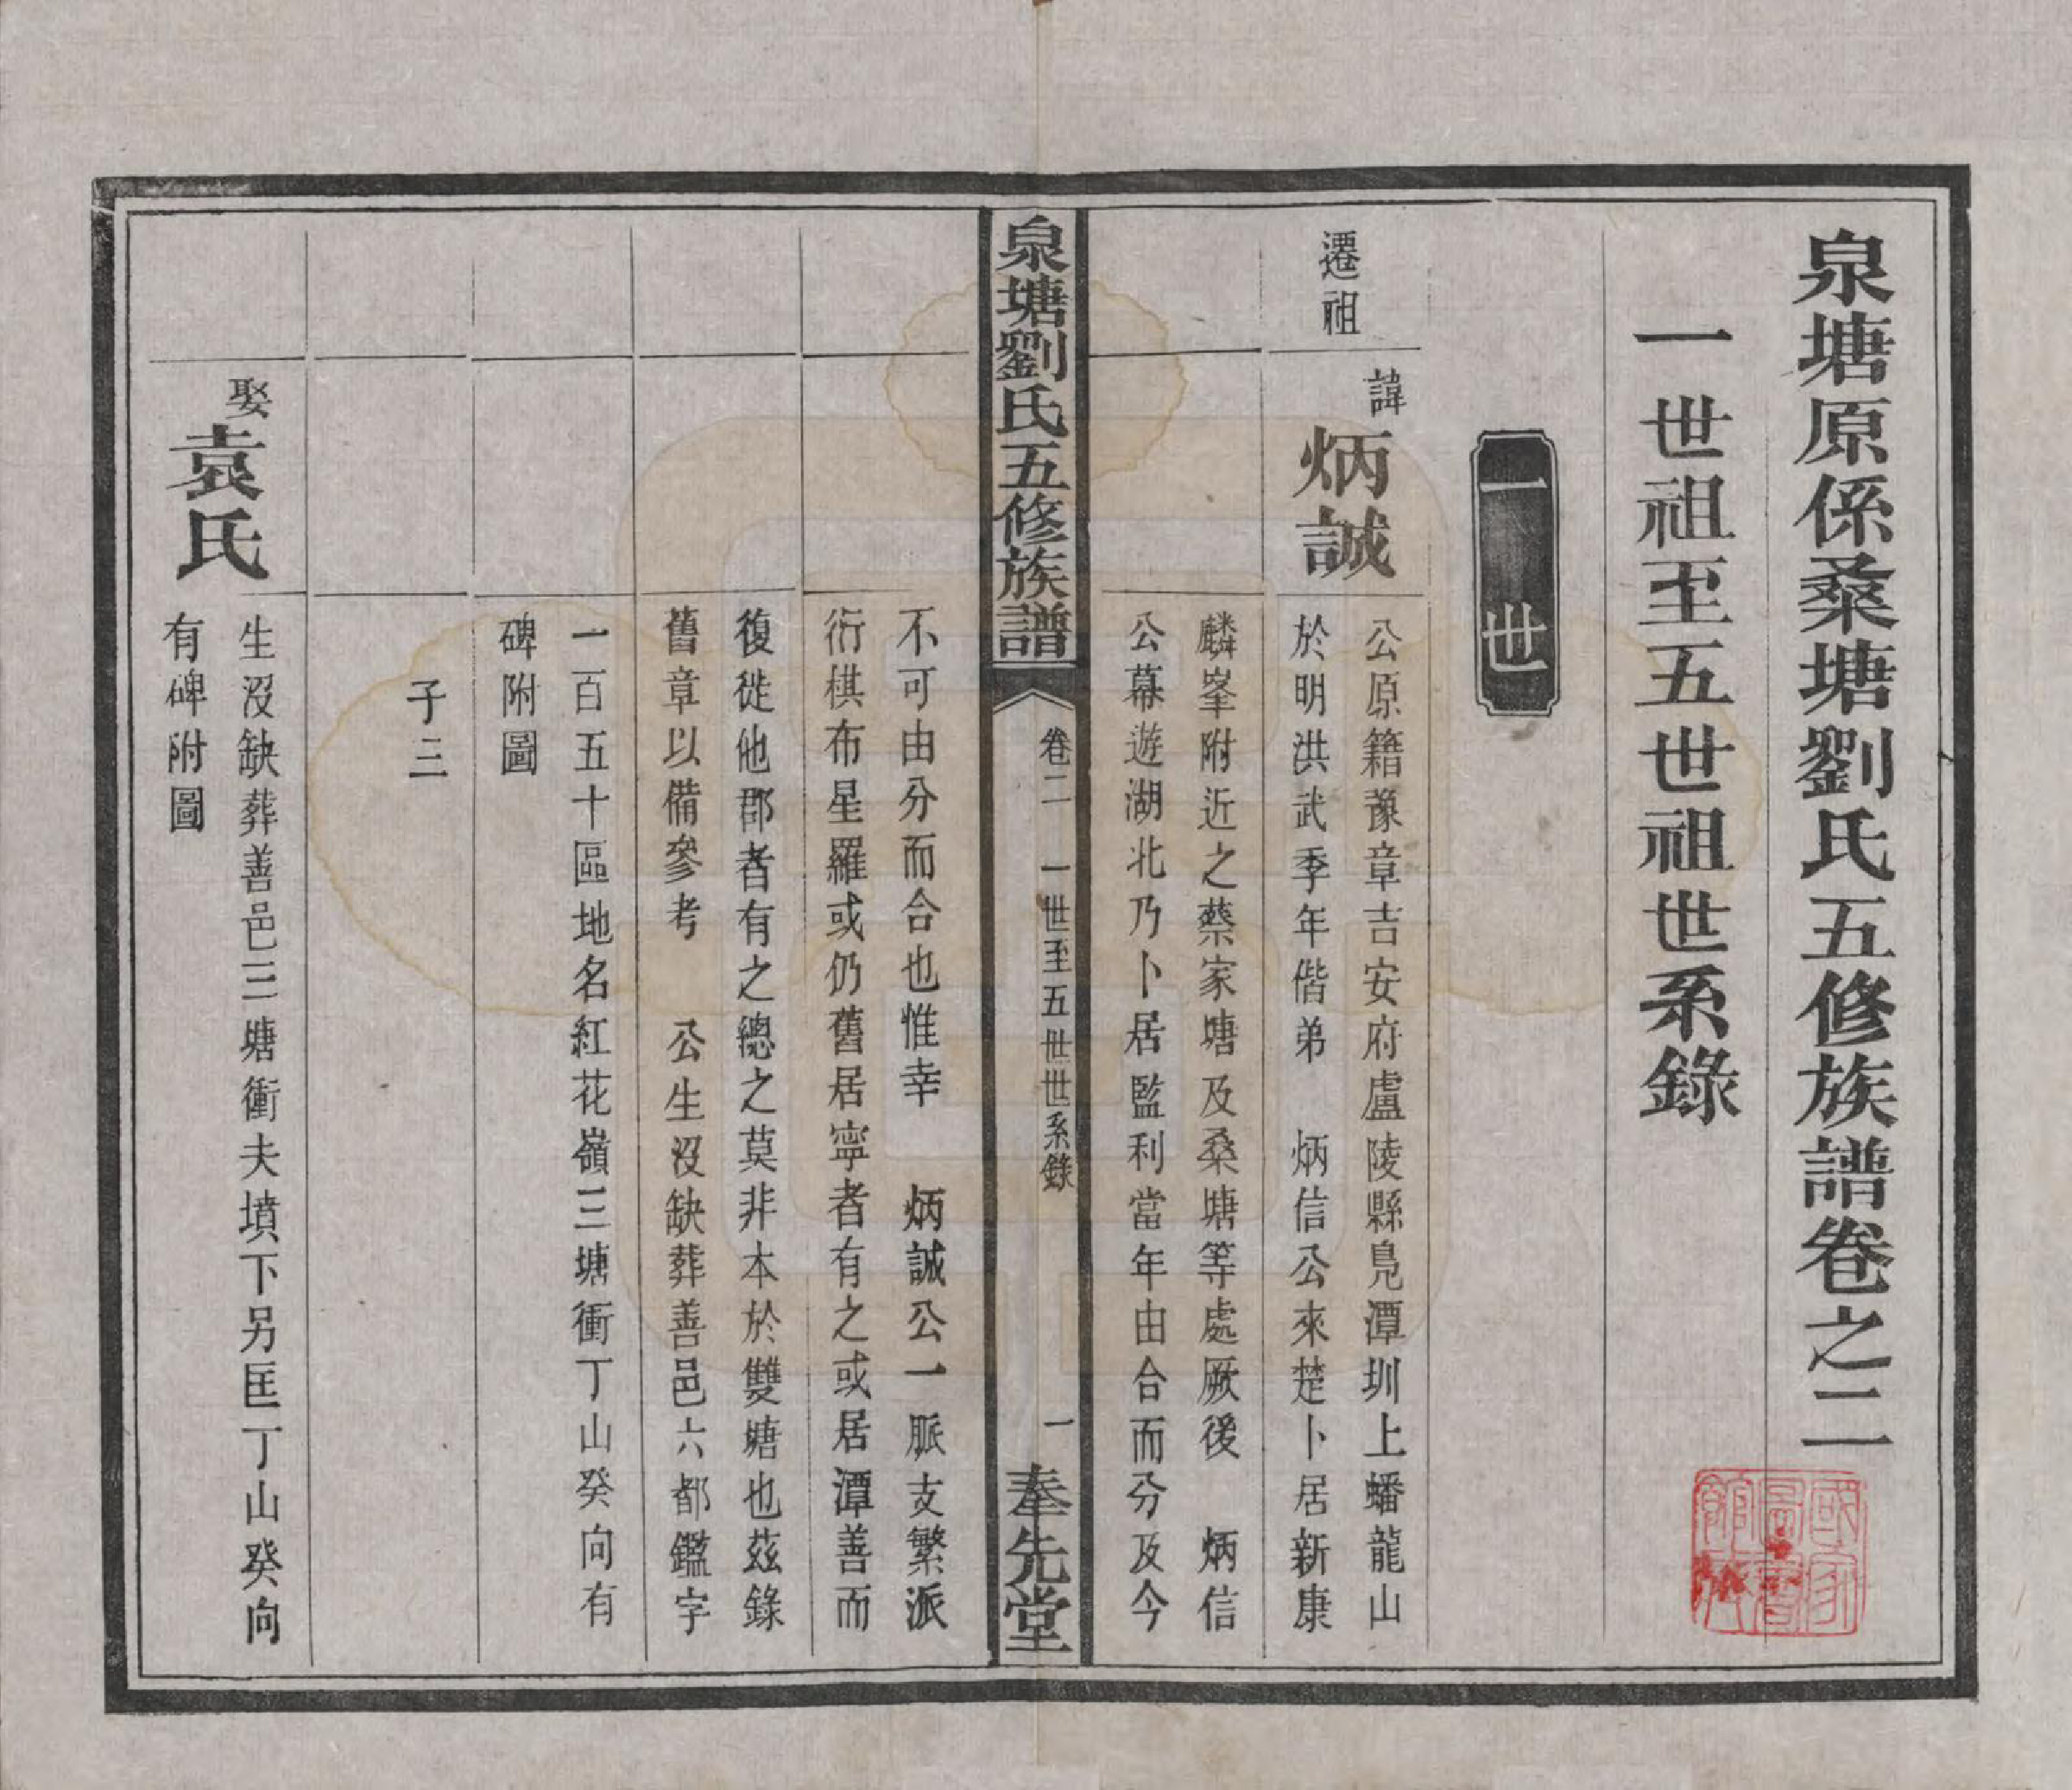 泉塘原係桑塘劉氏五修族譜卷之二
一世祖至五世祖世系錄
一世
遷祖
諱
炳誠
公原籍豫章吉安府盧陵縣鳧潭圳上蟠龍山
於明洪武季年偕弟 炳信公來楚卜居新康
麟峯附近之蔡家塘及桑塘等處厥後 炳信
公幕遊湖北乃卜居監利當年由合而分及今
泉塘劉氏五修族譜
卷二 一世至五世世系錄
一
奉先堂
不可由分而合也惟幸 炳誠公一脈支繁派
衍棋布星羅或仍舊居寧者有之或居潭善而
復徙他郡者有之總之莫非本於雙塘也茲錄
舊章以備參考 公生沒缺葬善邑六都鑑字
一百五十區地名紅花嶺三塘衝丁山癸向有
碑附圖
子三
娶
袁氏
生沒缺葬善邑三塘衝夫墳下另匡丁山癸向
有碑附圖
國家
圖書
館藏